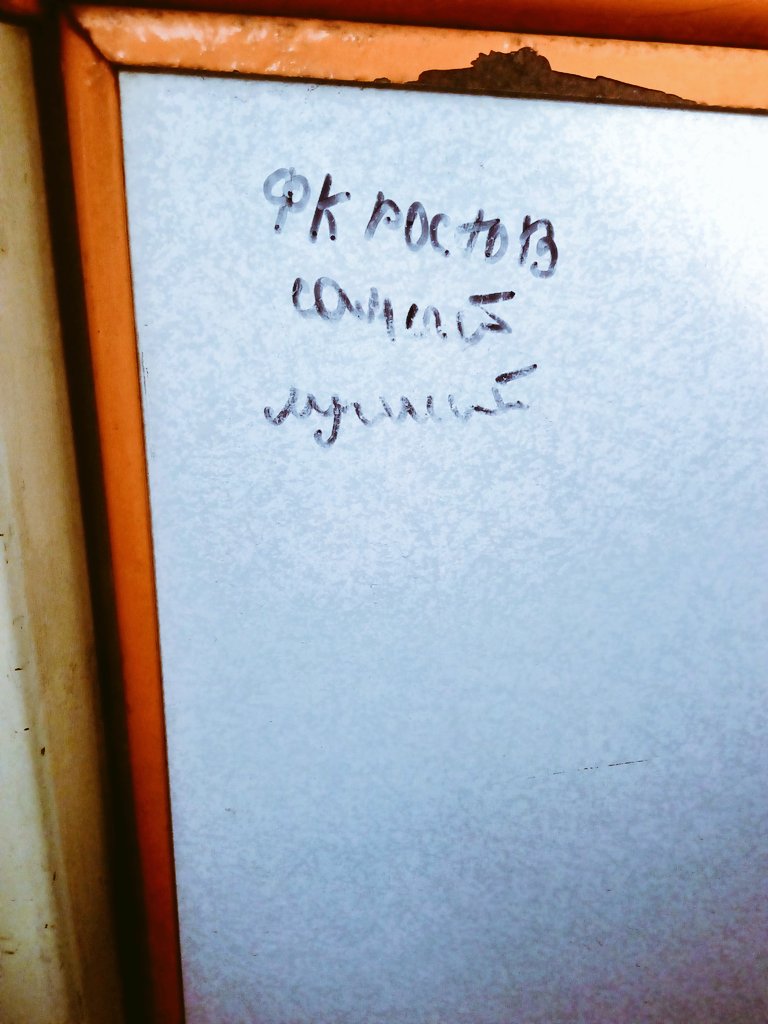 ФК РОСТОВ
самый
лучший